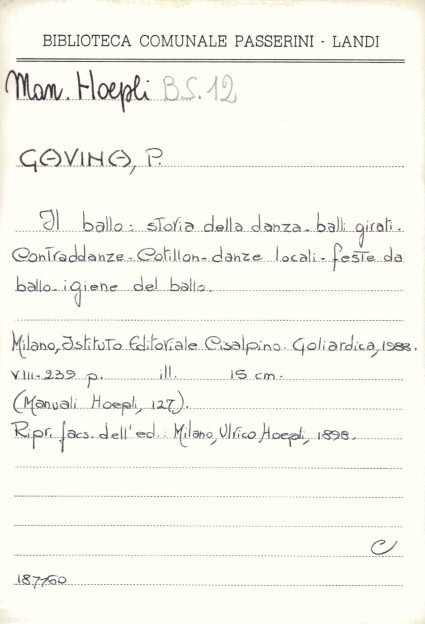 BIBLIOTECA COMUNALE PASSERINI - LANDI
Man. Hoepli B.S.12
GAVINA, P.
Il ballo: storia della danza - balli girati -
Contraddanze - Cotillon - danze locali - feste da
ballo - igiene del ballo.
Milano, Istituto Editoriale Cisalpino-Goliardica, 1988.
VIII-239 p. ill. 15 cm.
(Manuali Hoepli, 127).
Ripr. facs. dell'ed.: Milano, Ulrico Hoepli, 1898.
C
187760